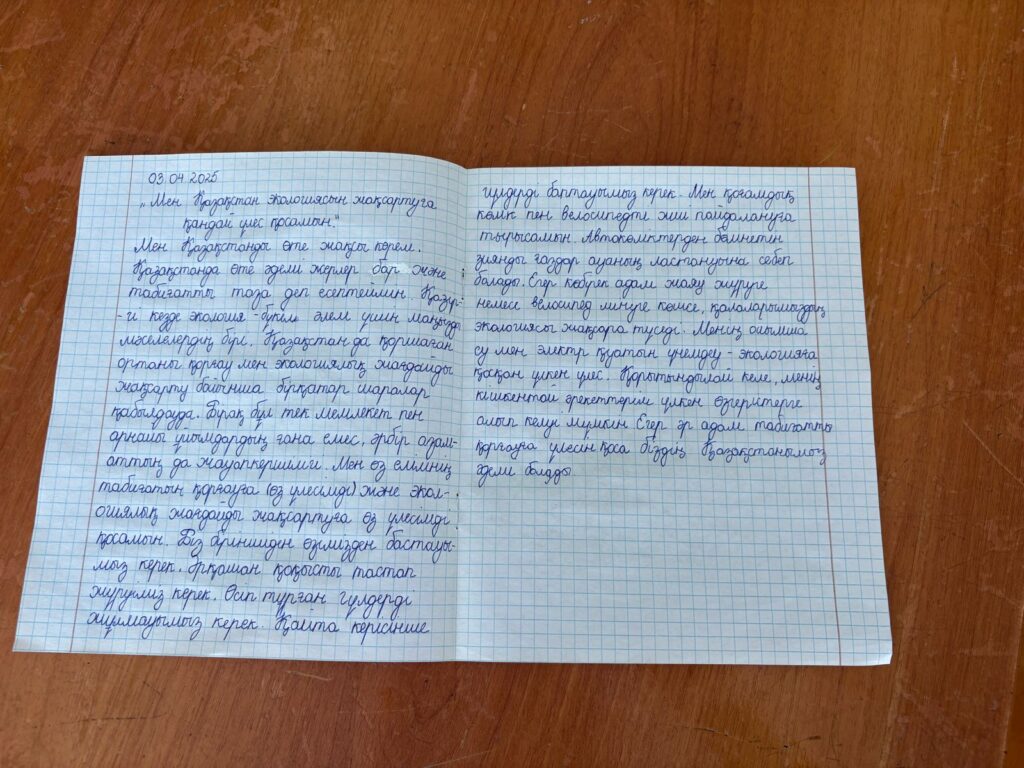 03.04.2025
„Мен Қазақстан экологиясын жақсартуға
қандай үлес қосамын."
Мен Қазақстанды өте жақсы көрем.
Қазақстанда өте әдемі жерлер бар және
табиғатты таза деп есептеймін. Қазір-
-гі кезде экология - бүкіл әлем үшін маңызды
мәселелердің бірі. Қазақстан да қоршаған
ортаны қорғау мен экологиялық жағдайды
жақсарту бойынша бірқатар шаралар
қабылдауда. Бірақ бұл тек мемлекет пен
арнайы ұйымдардың ғана емес, әрбір азам-
аттың да жауапкершілігі. Мен өз елімнің
табиғатын қорғауға (өз үлесімді) және экол-
огиялық жағдайды жақсартуға өз үлесімді
қосамын. Біз біріншіден өзімізден бастауы-
мыз керек. Әрқашан қоқысты тастап
жүруіміз керек. Өсіп тұрған гүлдерді
жұлмауымыз керек. Қайта керісінше
гүлдерді баптауымыз керек. Мен қоғамдық
көлік пен велосипедті жиі пайдалануға
тырысамын. Автокөліктерден бөлінетін
зиянды газдар ауаның ластануына себеп
болады. Егер көбірек адам жаяу жүруге
немесе велосипед мінуге көшсе, қалаларымыздың
экологиясы жақсара түседі. Менің ойымша
су мен электр қуатын үнемдеу - экологияға
қосқан үлкен үлес. Қорытындылай келе, менің
кішкентай әрекеттерім үлкен өзгерістерге
алып келуі мүмкін Егер әр адам табиғатты
қорғауға үлесін қоса біздің Қазақстанымыз
әдемі болады